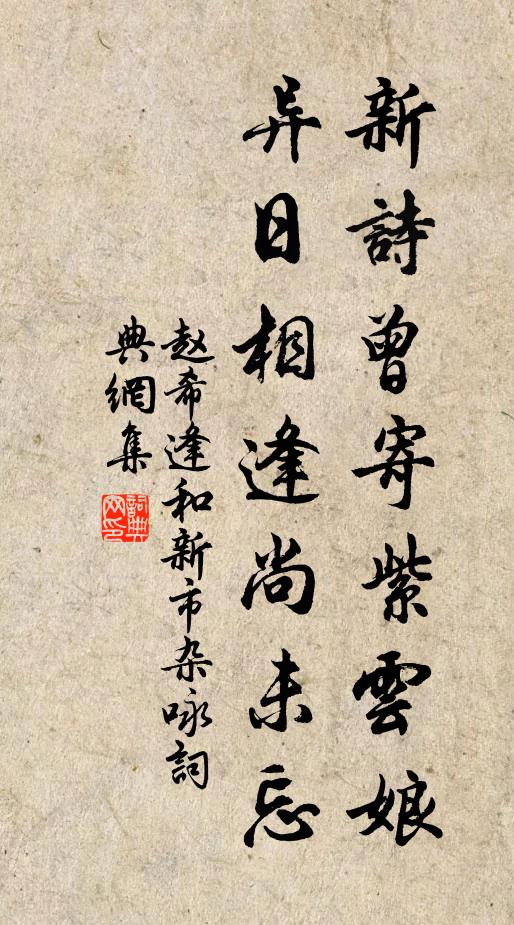 新詩曾寄紫雲娘
异日相逢尚未忘
赵希逢和新市杂咏詞
典網集
詞典
网印